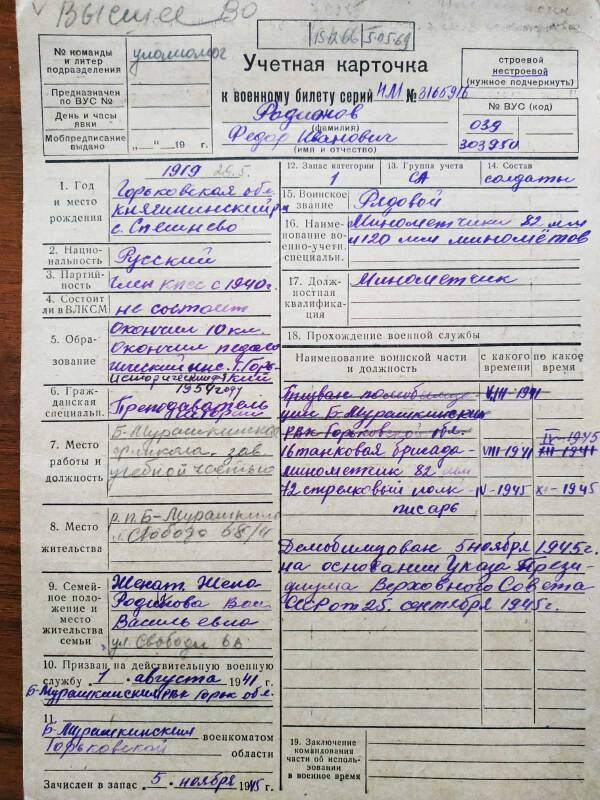 Высшее ВО
15.12.66 5.05.69
№ команды
и литер
подразделения
Предназначен
по ВУС №
День и часы
явки
Мобпредписание
выдано
„ “ 19 г.
Учетная карточка
к военному билету серии НМ № 3165916
Родионов
(фамилия)
Федор Иванович
(имя и отчество)
строевой
нестроевой
(нужное подчеркнуть)
№ ВУС (код)
039
303950
1. Год
и место
рождения
1919 26.5.
Горьковская обл.
Княгининский р-н
с. Спешнево
2. Нацио-
нальность
Русский
3. Партий-
ность
Член КПСС с 1940 г.
4. Состоит
ли в ВЛКСМ
не состоит
5. Обра-
зование
Окончил 10 кл.
Окончил педаго
гический инс. г. Горь
кий
1954 году
6. Граж-
данская
специальн.
Преподаватель
7. Место
работы и
должность
Б-Мурашкинская
школа, зав.
учебной частью
8. Место
жительства
р.п. Б-Мурашкино
Свобода
9. Семей-
ное поло-
жение и
место
жительства
семьи
Женат Жена
Родионова
Васильевна
ул. Свободы
10. Призван на действительную военную
службу 1 августа 1941 г.
Б-Мурашкинский РВК Горьк. обл.
11.
Б-Мурашкинским
военкоматом
Горьковской
области
Зачислен в запас 5 ноября 1945 г.
12. Запас категории
1
13. Группа учета
СА
14. Состав
солдаты
15. Воинское
звание
Рядовой
16. Наиме-
нование во-
енно-учетн.
специальн.
Минометчики 82 мм
и 120 мм миномётов
17. Долж-
ностная
квалифика-
ция
Минометчик
18. Прохождение военной службы
Наименование воинской части
и должность
с какого
времени
по какое
время
Призван по мобилиза
ции Б-Мурашкинским
РВК Горьковской обл.
VIII-1941
16 танковая бригада-
минометчик 82 мм
VIII-1941
IV-1945
XII-1941
72 стрелковый полк-
писарь
IV-1945
XI-1945
Демобилизован 5 ноября 1945 г.
на основании Указа Прези-
диума Верховного Совета
СССР от 25 сентября 1945 г.
19. Заключение
командования
части об исполь-
зовании
в военное время